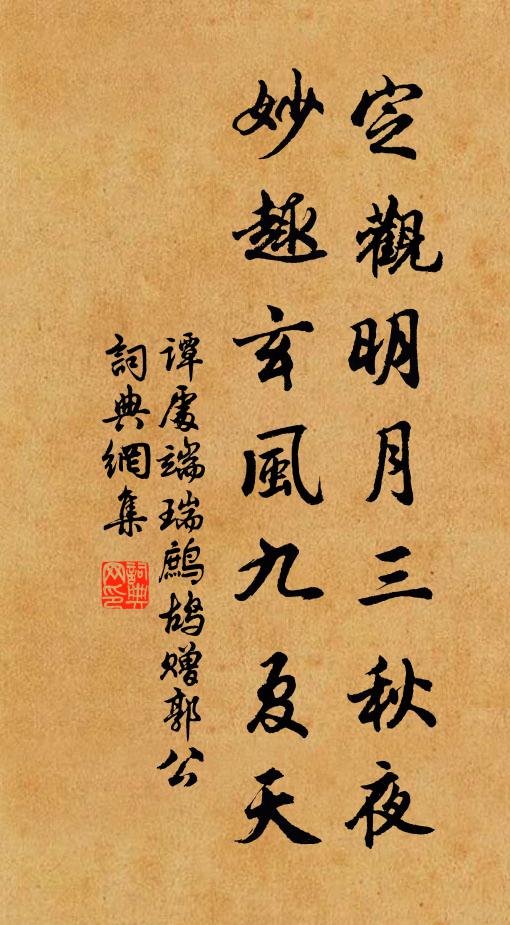 定觀明月三秋夜
妙趣玄風九夏天
谭處端瑞鷓鴣赠郭公
詞典網集
詞典網印